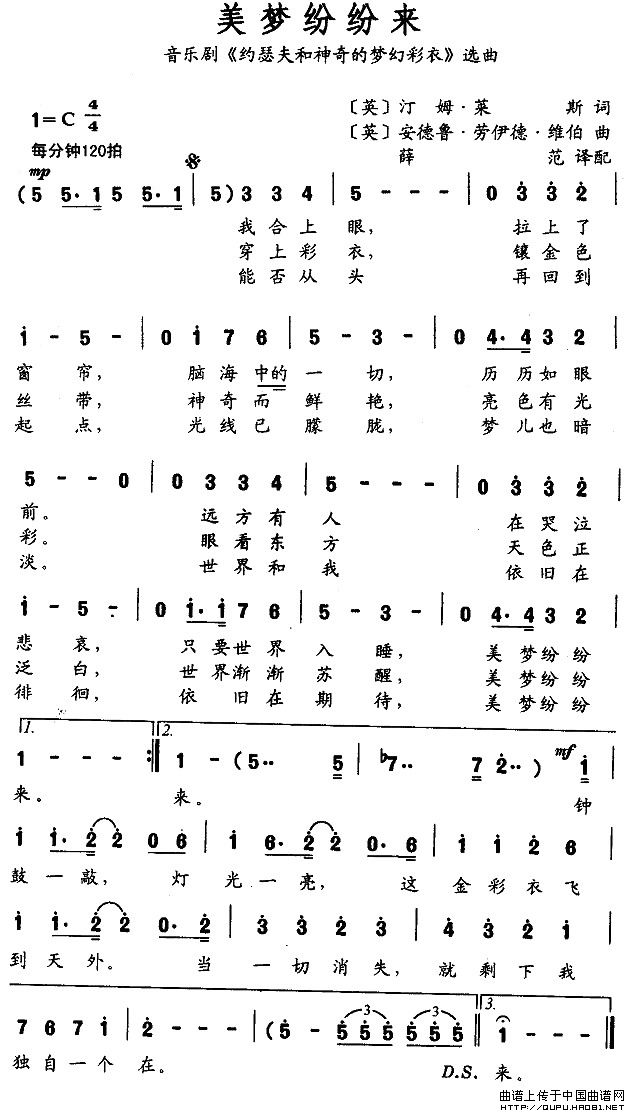 美梦纷纷来
音乐剧《约瑟夫和神奇的梦幻彩衣》选曲
1=C 4/4
〔英〕汀姆·莱斯 词
〔英〕安德鲁·劳伊德·维伯 曲
每分钟120拍
薛范 译配
mp
(5 5·1 5 5·1 | 5) 3 3 4 | 5 - - - | 0 3 3 2
我合上眼, 拉上了
穿上彩衣, 镶金色
能否从头 再回到
1 - 5 - | 0 1 7 6 | 5 - 3 - | 0 4·4 3 2
窗帘, 脑海中的一切, 历历如眼
丝带, 神奇而鲜艳, 亮色有光
起点, 光线已朦胧, 梦儿也暗
5 - - 0 | 0 3 3 4 | 5 - - - | 0 3 3 2
前。 远方有人 在哭泣
彩。 眼看东方 天色正
淡。 世界和我 依旧在
1 - 5 - | 0 1·1 7 6 | 5 - 3 - | 0 4·4 3 2
悲哀, 只要世界入睡, 美梦纷纷
泛白, 世界渐渐苏醒, 美梦纷纷
徘徊, 依旧在期待, 美梦纷纷
1. 2.
1 - - - :| 1 - (5·· 5 | ♭7·· 7 2··) mf 1
来。 来。 钟
1 1·2 2 0 6 | 1 6·2 2 0·6 | 1 1 2 6
鼓一敲, 灯光一亮, 这金彩衣飞
1 1·2 2 0·2 | 3 3 2 3 | 4 3 2 1
到天外。 当一切消失, 就剩下我
3.
7 6 7 1 | 2 - - - | (5 - 5 5 5 5 5 5 | 1 - ) |
独自一个在。 D.S. 来。
曲谱上传于中国曲谱网
HTTP://QUPU.HAO81.NET